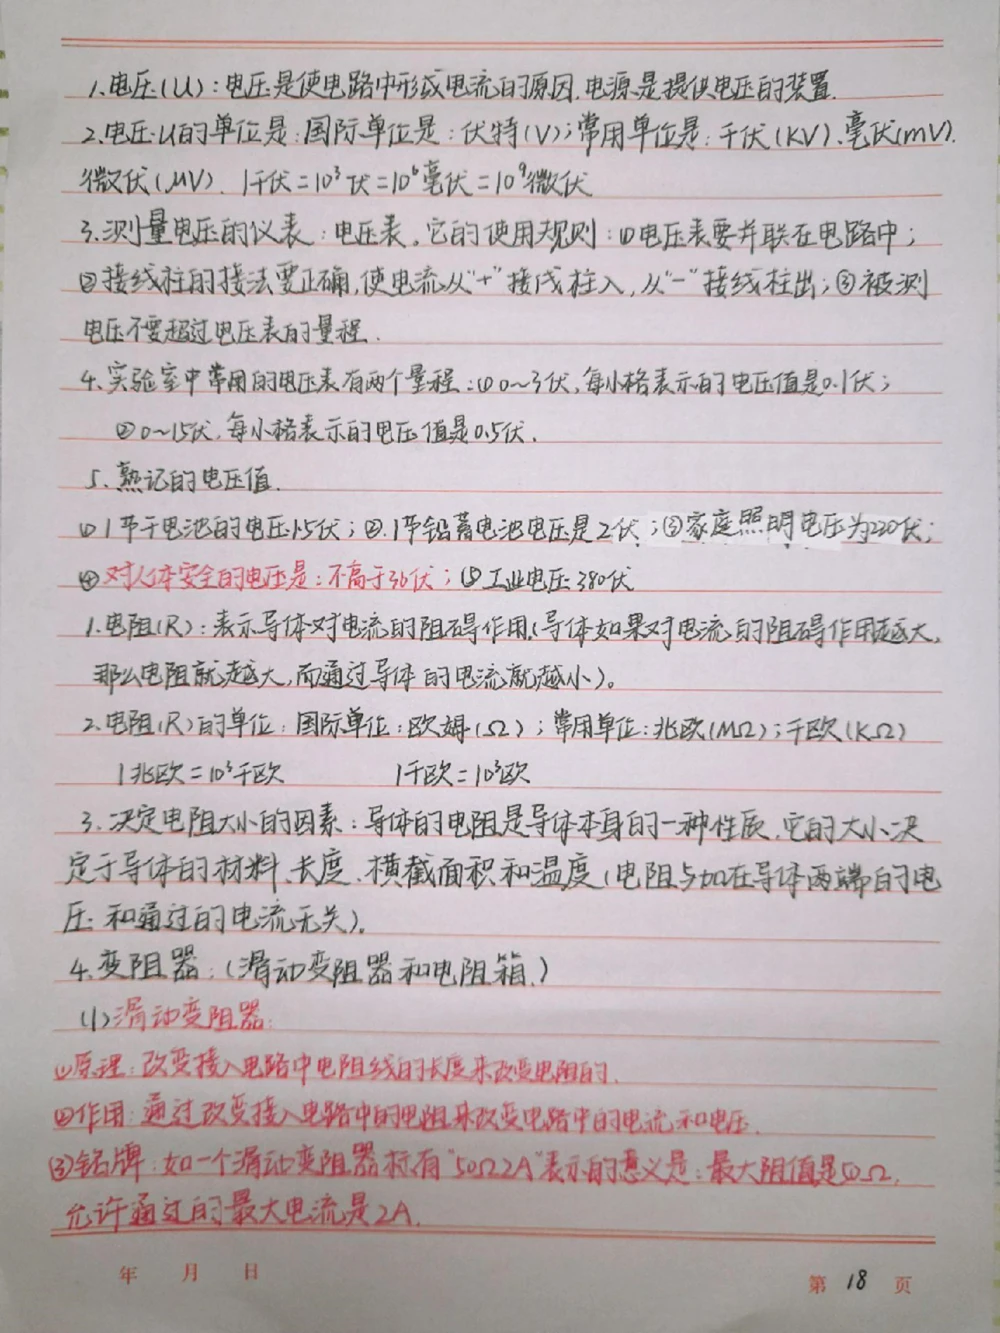 1.电压(U)：电压是使电路中形成电流的原因.电源是提供电压的装置.
2.电压U的单位是：国际单位是：伏特(V)；常用单位是：千伏(KV)、毫伏(mV).
微伏(μV). 1千伏=10³伏=10⁶毫伏=10⁹微伏
3.测量电压的仪表：电压表。它的使用规则：①电压表要并联在电路中；
②接线柱的接法要正确,使电流从"+"接线柱入,从"-"接线柱出；③被测
电压不要超过电压表的量程.
4.实验室中常用的电压表有两个量程：①0~3伏,每小格表示的电压值是0.1伏；
②0~15伏,每小格表示的电压值是0.5伏.
5.熟记的电压值.
①1节干电池的电压1.5伏；②.1节铅蓄电池电压是2伏；③家庭照明电压为220伏；
④对人体安全的电压是：不高于36伏；⑤工业电压380伏
1.电阻(R)：表示导体对电流的阻碍作用.(导体如果对电流的阻碍作用越大,
那么电阻就越大,而通过导体的电流就越小)。
2.电阻(R)的单位：国际单位：欧姆(Ω)；常用单位：兆欧(MΩ)；千欧(KΩ)
1兆欧=10³千欧 1千欧=10³欧
3.决定电阻大小的因素：导体的电阻是导体本身的一种性质,它的大小决
定于导体的材料、长度、横截面积和温度(电阻与加在导体两端的电
压和通过的电流无关)。
4.变阻器：(滑动变阻器和电阻箱.)
(1)滑动变阻器：
①原理：改变接入电路中电阻线的长度来改变电阻的.
②作用：通过改变接入电路中的电阻来改变电路中的电流和电压.
③铭牌：如一个滑动变阻器标有"50Ω2A"表示的意义是：最大阻值是50Ω,
允许通过的最大电流是2A.
年 月 日
第 18 页